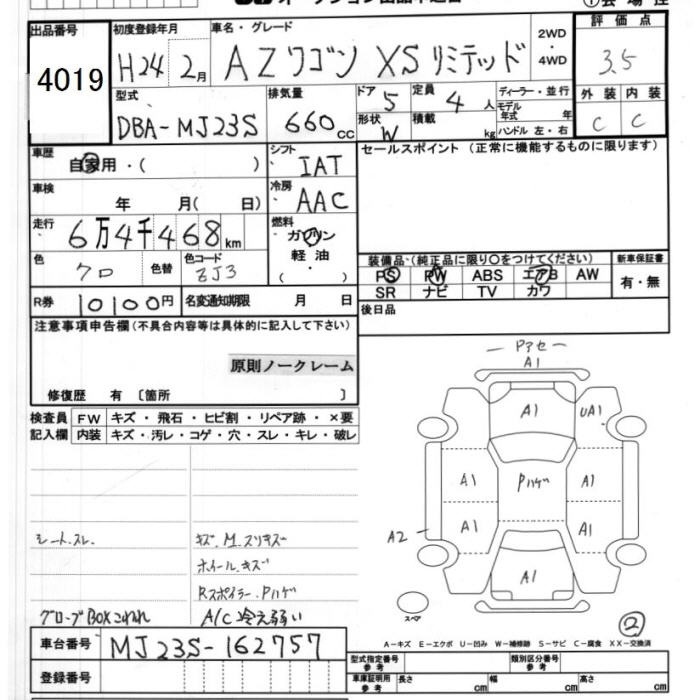 出品番号
4019
初度登録年月
H24 2月
車名・グレード
AZワゴン XSリミテッド
2WD
・
4WD
評価点
3.5
型式
DBA-MJ23S
排気量
660cc
ドア 5
形状 W
定員 4人
積載 kg
ディーラー・並行
モデル年式 年
ハンドル 左・右
外装 内装
C C
車歴
自家用・( )
シフト
IAT
車検
年 月( 日)
冷房
AAC
走行
6万4千468km
燃料
ガソリン
軽油
( ・ )
色
クロ
色替
色コード
ZJ3
R券 10100円
名変通知期限 月 日
セールスポイント (正常に機能するものに限ります)
装備品 (純正品に限り○をつけてください)
新車保証書
PS PW ABS エアB AW
SR ナビ TV カワ
有・無
後日品
注意事項申告欄(不具合内容等は具体的に記入して下さい)
原則ノークレーム
修復歴 有〔箇所 〕
検査員記入欄
FW キズ・飛石・ヒビ割・リペア跡・×要
内装 キズ・汚レ・コゲ・穴・スレ・キレ・破レ
シート.スレ
キズ.M.スリキズ
ホイール.キズ
Rスポイラー.Pハゲ
グローブBOXこわれ
A/C冷え弱い
Pアセー
A1
A1
UA1
A1
Pハゲ
A1
A2
A1
A1
A1
スペア
2
A-キズ E-エクボ U-凹み W-補修跡 S-サビ C-腐食 XX-交換済
車台番号
MJ23S-162757
登録番号
型式指定番号
参考
類別区分番号
参考
車庫証明用
参考
長さ cm
幅 cm
高さ cm